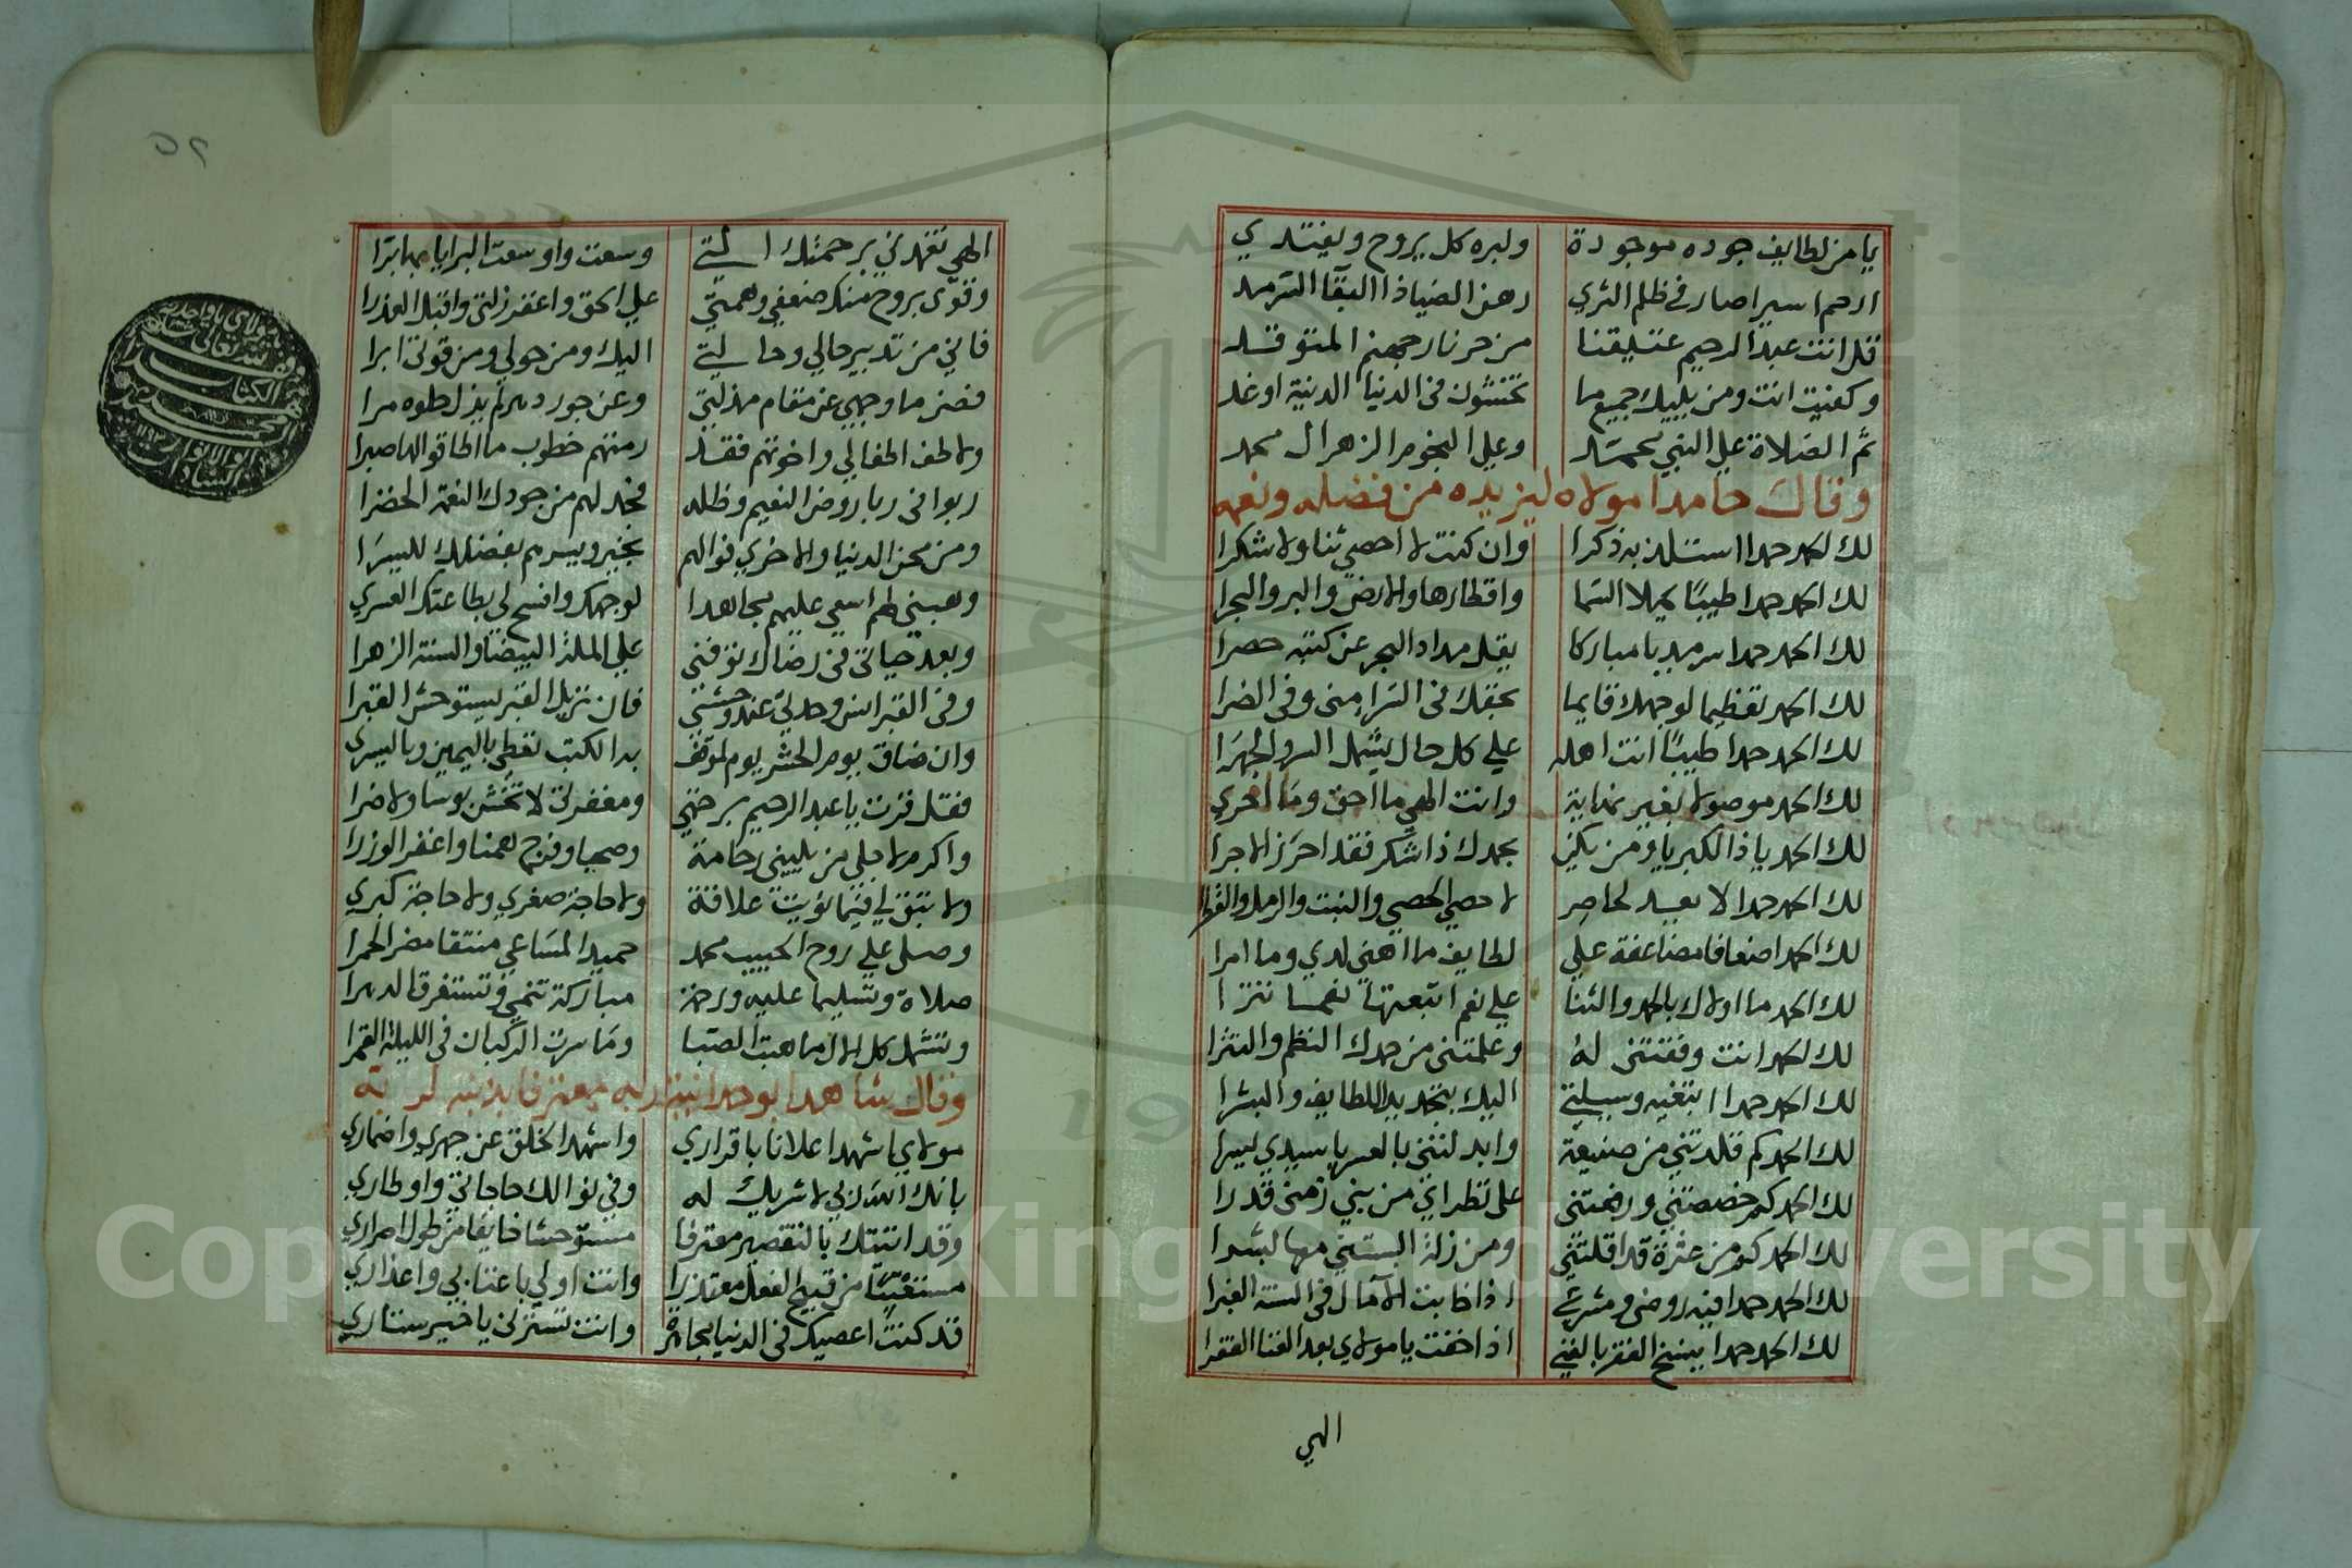 يا من لطايف جوده موجودة ولبره كل يروح ويغتدي
ارحم اسيرا صار في ظلم الثري رهن الضيا ذا البقا السرمد
قل انت عبد الرحيم عتيقنا من حر نار جهنم المتوقد
وكفيت انت ومن يليك جميع ما تخشون في الدنيا الدنية او غد
ثم الصلاة علي النبي محمد وعلي النجوم الزهر ال محمد
وقال حامدا مولاه ليزيده من فضله ونعمه
لك الحمد حمدا استلذ به ذكرا وان كنت لا احصي ثنا ولا شكرا
لك الحمد حمدا طيبا يملا السما واقطارها والارض والبر والبحرا
لك الحمد حمدا سرمديا مباركا يقل مداد البحر عن كتبه حصرا
لك الحمد تعظيما لوجهك قايما بحقك في السرا مني وفي الضرا
لك الحمد حمدا طيبا انت اهله علي كل حال يشمل السر والجهرا
لك الحمد موصولا بغير نهاية وانت الهي ما احق وما احري
لك الحمد يا ذا الكبريا ومن يكن بحمدك ذا شكر فقد احرز الاجرا
لك الحمد حمدا لا يعد لحاصر لاحصي الحصي والنبت والرمل والقطرا
لك الحمد اضعافا مضاعفة علي لطايف ما اهني لدي وما امرا
لك الحمد ما اولاك بالحمد والثنا علي نعم اتبعتها نعما تترا
لك الحمد انت وفقتني له وعلمتني من حمدك النظم والنثرا
لك الحمد حمدا ابتغيه وسيلتي اليك بتجديد اللطايف والبشرا
لك الحمد كم قلدتني من صنيعة وابدلتني بالعسر يا سيدي يسرا
لك الحمد كم خصصتني ورفعتني علي نظراني من بني زمني قدرا
لك الحمد كم من عثرة قد اقلتني ومن زلة البستني معها سترا
لك الحمد حمدا فيه روضي ومشرعي اذا خابت الامال في السنة الغبرا
لك الحمد حمدا ينسخ الفقر بالغني اذا خفت يا مولاي بعد الغنا الفقرا
الهي
الهي تغمدني برحمتك التي وسعت واوسعت البرايا بها برا
وقوي بروح منك ضعفي وهمتي علي الحق واغفر زلتي واقبل العذرا
فاني من تدبير حالي وحالتي اليك ومن حولي ومن قوتي ابرا
فصن ما وجهي عن مقام مذلتي وعن جور دهر لم يزل حلوه مرا
ولاطف اطفالي واخوتهم فقد رمتهم خطوب ما اطاقوا لها صبرا
ربوا في ربا روض النعيم وظله فجد لهم من جودك النعمة الخضرا
ومن محن الدنيا والاخري فوالهم بخير ويسرهم بفضلك لليسرا
وهبني لهم اسعي عليهم مجاهدا لوجهك وافسح لي بطاعتك العمري
وبعد حياتي في رضاك توفني علي الملة البيضا والسنة الزهرا
وفي القبر انس وحدتي عند وحشتي فان نزيل القبر يستوحش القبرا
وان ضاق يوم الحشر يوم لموقف بدا الكتب تعطي باليمين وباليسري
فقل فزت يا عبد الرحيم برحمتي ومغفرتي لا تخش بوسا ولا ضرا
واكرم لاجلي من يليني رحامة وصحبا وفرج همنا واغفر الوزرا
ولا تبق لي فيما نويت علاقة ولا حاجة صغري ولا حاجة كبري
وصلي علي روح الحبيب محمد حميد المساعي منتقا مضر الحمرا
صلاة وتسليما عليه ورحمة مباركة تنمي وتستغرق الدهرا
وتشمل كل الال ما هبت الصبا وما سرت الركبان في الليلة القمرا
وقال شاهدا بوحدانية ربه معترفا بذنبه
مولاي اشهد اعلانا باقراري واشهد الخلق عن جهري واضماري
بانك الله ربي لا شريك له وفي نوالك حاجاتي واوطاري
وقد اتيتك بالتقصير معترفا مستوحشا خايفا من طول اصراري
مستغيثا من قبيح الفعل معتذرا وانت اولي باعتابي واعذاري
قد كنت اعصيك في الدنيا مجاهرة وانت تسترني يا خير ستاري